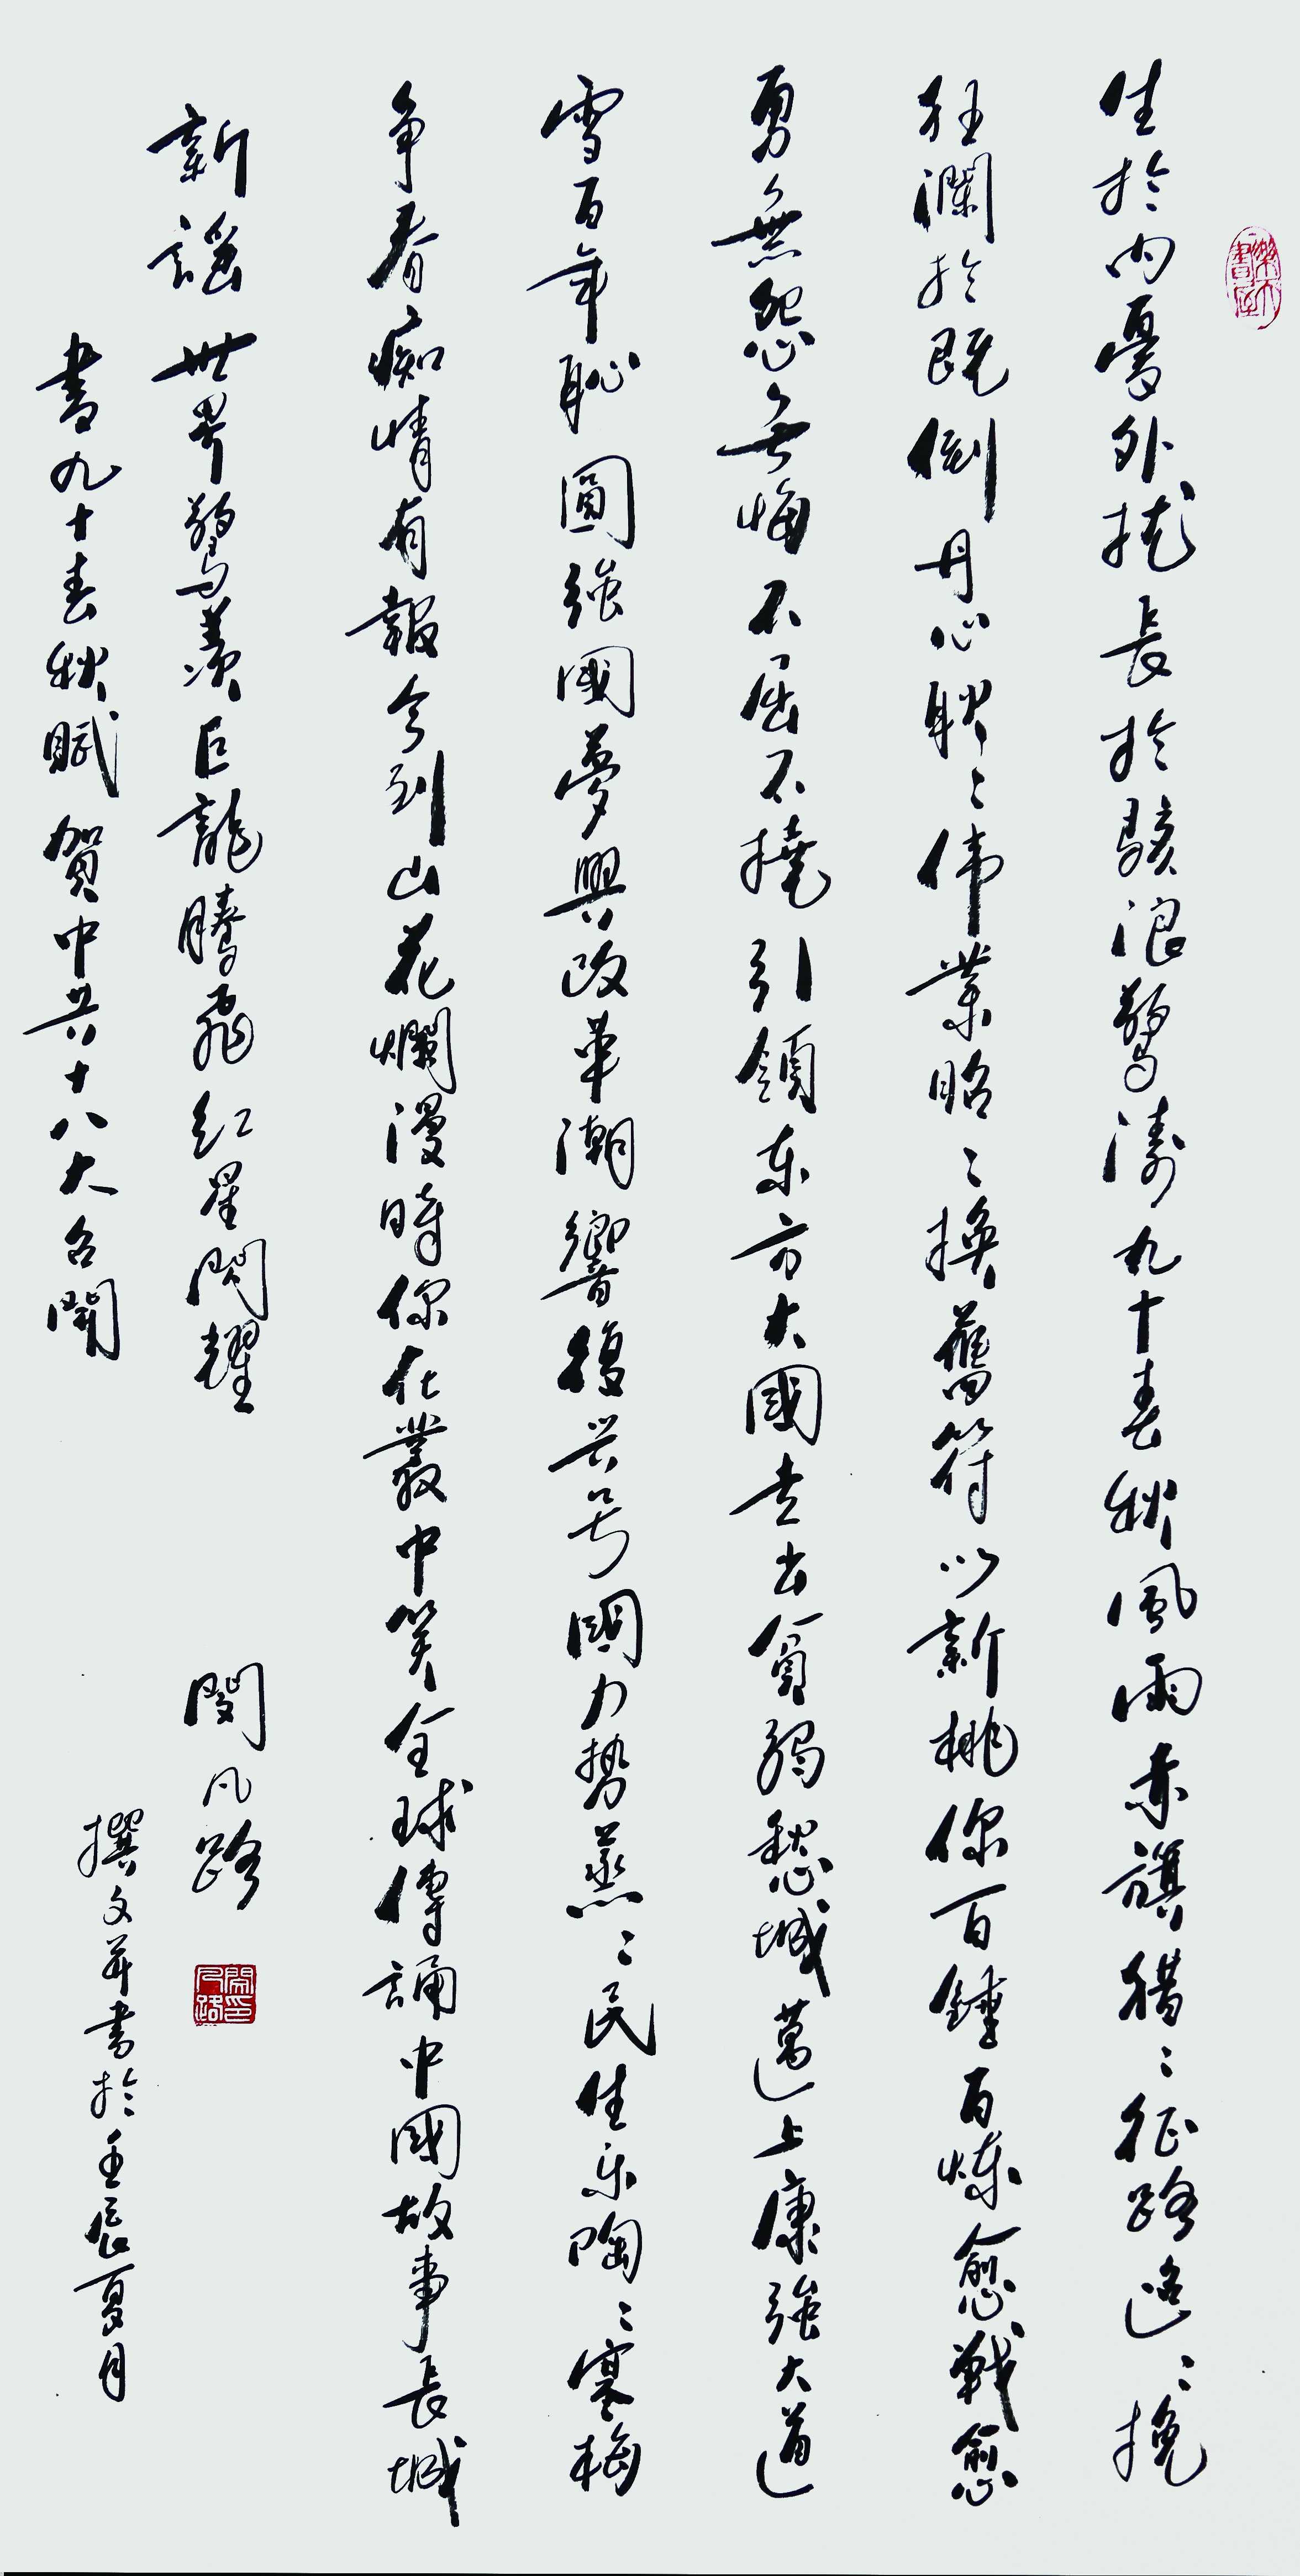 樂天書屋
生於内憂外扰長於駭浪驚濤九十春秋風雨赤旗猎〻征路遥〻挽
狂瀾於既倒丹心耿〻伟業昭〻换舊符以新桃你百錘百煉愈戰愈
勇無怨無悔不屈不撓引領东方大國走出貧弱愁城邁上康強大道
雪百年恥圓強國夢興改革潮響復兴号國力势蒸〻民生乐陶〻寒梅
争春痴情有報今到山花爛漫時你在叢中笑全球傳誦中國故事長城
新謡世界驚羨巨龍騰飛红星閃耀
書九十春秋賦賀中共十八大召開
閔凡路
閔凡路印
撰文并書於壬辰夏月